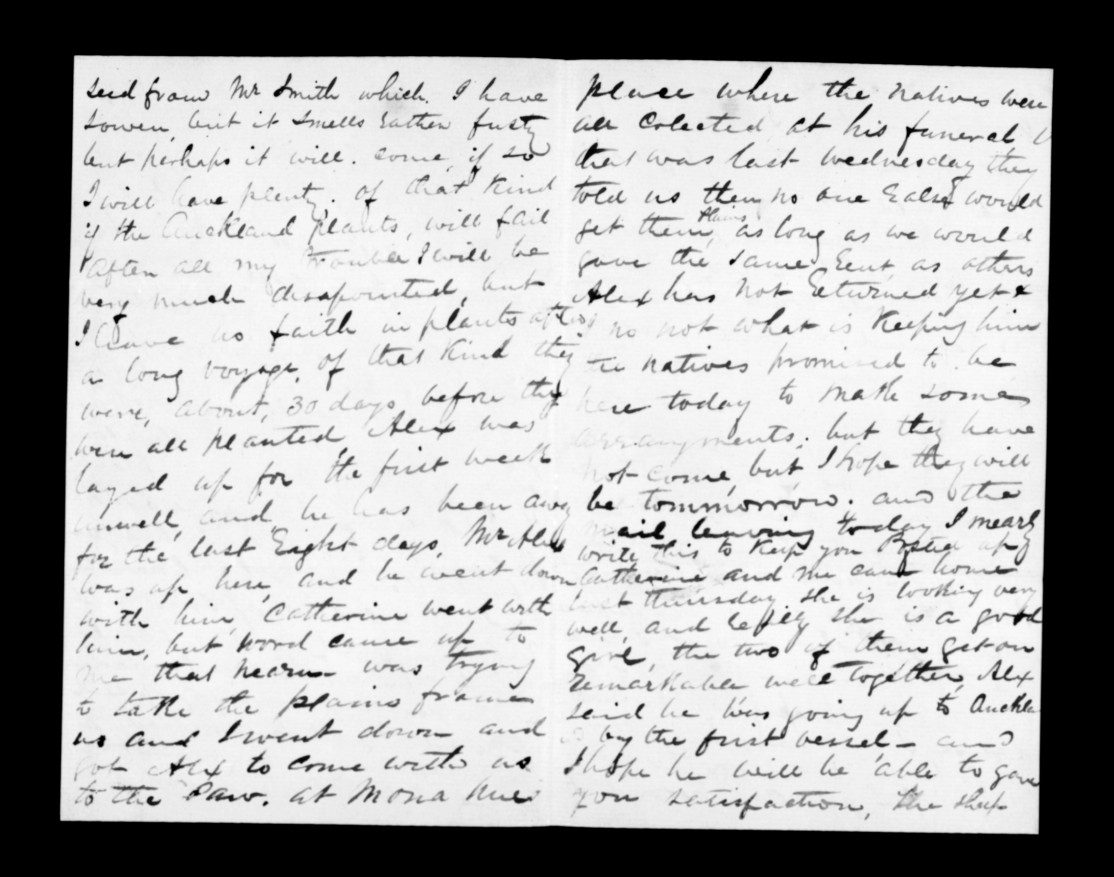 seed from Mr Smith which. I have
sowen, but it smells rather fusty
but perhaps it will. come, if so
I will have plenty. of that kind
if the Auckland plants, will fail
after all my trouble I will be
very much disapointed, but
I have no faith in plants after
a long voyage, of that kind they
were, about, 30 days, before they
were all planted, Alex was
layed up for the first week
unwell, and he has been away
for the, last Eight days, Mr Alex
was up here, and he went down
with him, Catherine went with
him, but word came up to
me that was trying
to take the plains from
us and I went down and
got Alex to come with us
to the Paw. at
place where the natives were
all colected at his funeral,
that was last wednesday they
told us then no one Ealse would
get them, plains as long as we would
gave the same Rent, as others
Alex has not Returned yet &
no not what is Keeping him
The natives promised to be
here today to make some
arrangments. but they have
not come, but, I hope they will
be tommorrow. and the
mail leaving today I mearly
write this to Keep you Posted up
Catherine and me came home
last thursday she is looking very
well, and she is a good
girl, the two of them get on
Remarkable well together, Alex
said he was going up to Auckla
by the first vessel - and
I hope he will be able to gave
you satisfaction, the sheep